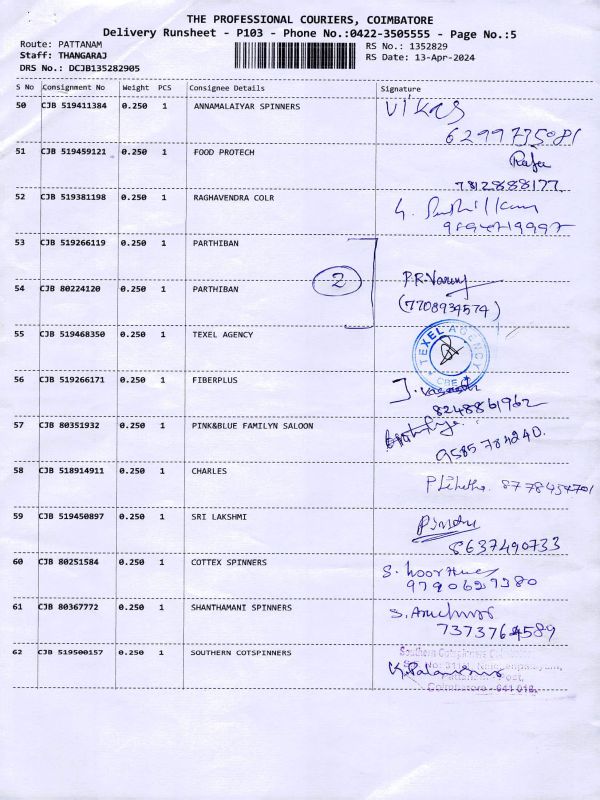 THE PROFESSIONAL COURIERS, COIMBATORE
Delivery Runsheet - P103 - Phone No.:0422-3505555 - Page No.:5
Route: PATTANAM
RS No.: 1352829
Staff: THANGARAJ
RS Date: 13-Apr-2024
DRS No.: DCJB135282905
S No Consignment No Weight PCS Consignee Details Signature
50 CJB 519411384 0.250 1 ANNAMALAIYAR SPINNERS Vikas
6299735081
51 CJB 519459121 0.250 1 FOOD PROTECH Raja
7812888177
52 CJB 519381198 0.250 1 RAGHAVENDRA COLR
53 CJB 519266119 0.250 1 PARTHIBAN
2
54 CJB 80224120 0.250 1 PARTHIBAN P.R.Varun
(7708934574)
55 CJB 519468350 0.250 1 TEXEL AGENCY TEXEL AGENCY CBE
56 CJB 519266171 0.250 1 FIBERPLUS
8248861962
57 CJB 80351932 0.250 1 PINK&BLUE FAMILYN SALOON
9585784240.
58 CJB 518914911 0.250 1 CHARLES 8778454701
59 CJB 519450897 0.250 1 SRI LAKSHMI
8637490733
60 CJB 80251584 0.250 1 COTTEX SPINNERS
61 CJB 80367772 0.250 1 SHANTHAMANI SPINNERS
7373764589
62 CJB 519500157 0.250 1 SOUTHERN COTSPINNERS Southern Cotspinners
Coimbatore - 641 016.